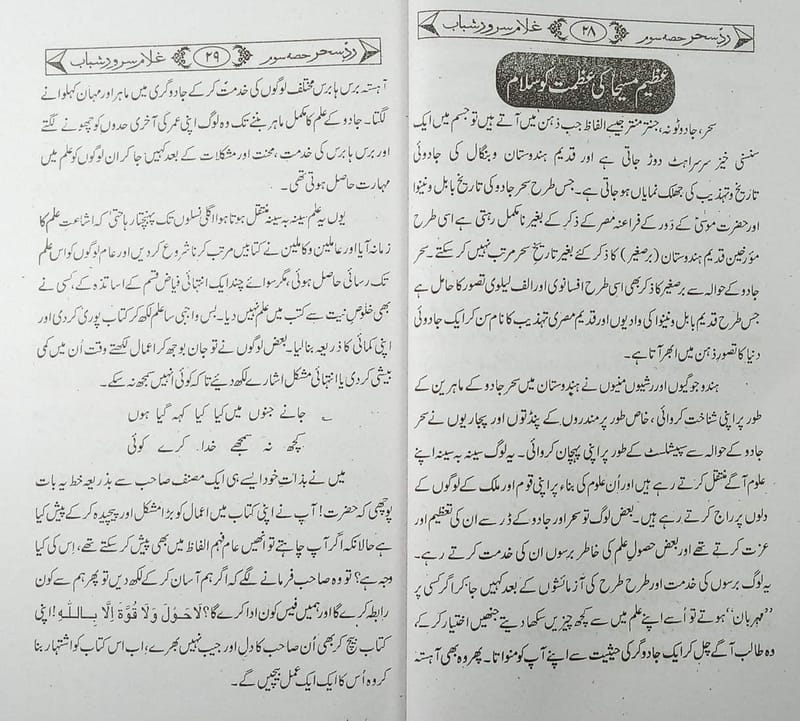 ردِّ سحر حصہ سوم ۲۸ غلام سرور شباب
عظیم مسیحا کی عظمت کو سلام
سحر، جادو ٹونہ، جنتر منتر جیسے الفاظ جب ذہن میں آتے ہیں تو جسم میں ایک
سنسنی خیز سرسراہٹ دوڑ جاتی ہے اور قدیم ہندوستان و بنگال کی جادوئی
تاریخ و تہذیب کی جھلک نمایاں ہو جاتی ہے۔ جس طرح سحر جادو کی تاریخ بابل و نینوا
اور حضرت موسیٰؑ کے دور کے فراعنہ مصر کے ذکر کے بغیر نامکمل رہتی ہے اسی طرح
مؤرخین قدیم ہندوستان (برصغیر) کا ذکر کئے بغیر تاریخ سحر مرتب نہیں کر سکتے۔ سحر
جادو کے حوالہ سے برصغیر کا ذکر بھی اسی طرح افسانوی اور الف لیلوی تصور کا حامل ہے
جس طرح قدیم بابل و نینوا کی وادیوں اور قدیم مصری تہذیب کا نام سن کر ایک جادوئی
دنیا کا تصور ذہن میں ابھر آتا ہے۔
ہندو جوگیوں اور رشیوں منیوں نے ہندوستان میں سحر جادو کے ماہرین کے
طور پر اپنی شناخت کروائی، خاص طور پر مندروں کے پنڈتوں اور پجاریوں نے سحر
جادو کے حوالہ سے سپیشلسٹ کے طور پر اپنی پہچان کروائی۔ یہ لوگ سینہ بہ سینہ اپنے
علوم آگے منتقل کرتے رہے ہیں اور اُن علوم کی بناء پر اپنی قوم اور ملک کے لوگوں کے
دلوں پر راج کرتے رہے ہیں۔ بعض لوگ تو سحر اور جادو کے ڈر سے ان کی تعظیم اور
عزت کرتے تھے اور بعض حصولِ علم کی خاطر برسوں ان کی خدمت کرتے رہے۔
یہ لوگ برسوں کی خدمت اور طرح طرح کی آزمائشوں کے بعد کہیں جا کر اگر کسی پر
’’مہربان‘‘ ہوتے تو اُسے اپنے علم میں سے کچھ چیزیں سکھا دیتے جنھیں اختیار کر کے،
وہ طالب آگے چل کر ایک جادوگر کی حیثیت سے اپنے آپ کو منواتا۔ پھر وہ بھی آہستہ
ردِّ سحر حصہ سوم ۲۹ غلام سرور شباب
آہستہ برس ہا برس مختلف لوگوں کی خدمت کر کے جادوگری میں ماہر اور مہان کہلوانے
لگتا۔ جادو کے علم کا مکمل ماہر بننے تک وہ لوگ اپنی عمر کی آخری حدوں کو چھونے لگتے
اور برس ہا برس کی خدمت، محنت اور مشکلات کے بعد کہیں جا کر ان لوگوں کو علم میں
مہارت حاصل ہوتی تھی۔
یوں یہ علم سینہ بہ سینہ منتقل ہوتا ہوا اگلی نسلوں تک پہنچتا رہا حتیٰ کہ اشاعت علم کا
زمانہ آیا اور عاملین و کاملین نے کتابیں مرتب کرنا شروع کر دیں اور عام لوگوں کو اس علم
تک رسائی حاصل ہوئی، مگر سوائے چند ایک انتہائی فیاض قسم کے اساتذہ کے، کسی نے
بھی خلوص نیت سے کتب میں علم نہیں دیا۔ بس واجبی سا علم لکھ کر کتاب پوری کر دی اور
اپنی کمائی کا ذریعہ بنا لیا۔ بعض لوگوں نے تو جان بوجھ کر اعمال لکھتے وقت اُن میں کمی
بیشی کر دی یا انتہائی مشکل اشارے لکھ دیئے تاکہ کوئی انہیں سمجھ نہ سکے۔
؎ جانے جنوں میں کیا کیا کہہ گیا ہوں
کچھ نہ سمجھے خدا کرے کوئی
میں نے بذاتِ خود ایسے ہی ایک مصنف صاحب سے بذریعہ خط یہ بات
پوچھی کہ حضرت! آپ نے اپنی کتاب میں اعمال کو بڑا مشکل اور پیچیدہ کر کے پیش کیا
ہے حالانکہ اگر آپ چاہتے تو انھیں عام فہم الفاظ میں بھی پیش کر سکتے تھے، اِس کی کیا
وجہ ہے؟ تو وہ صاحب فرمانے لگے کہ اگر ہم آسان کر کے لکھ دیں تو پھر ہم سے کون
رابطہ کرے گا اور ہمیں فیس کون ادا کرے گا؟ لَاحَوْلَ وَلَا قُوَّةَ اِلَّا بِاللّٰهِ! اپنی
کتاب بیچ کر بھی اُن صاحب کا دل اور جیب نہیں بھرے، اب اس کتاب کو اشتہار بنا
کر وہ اُس کا ایک ایک عمل بیچیں گے۔